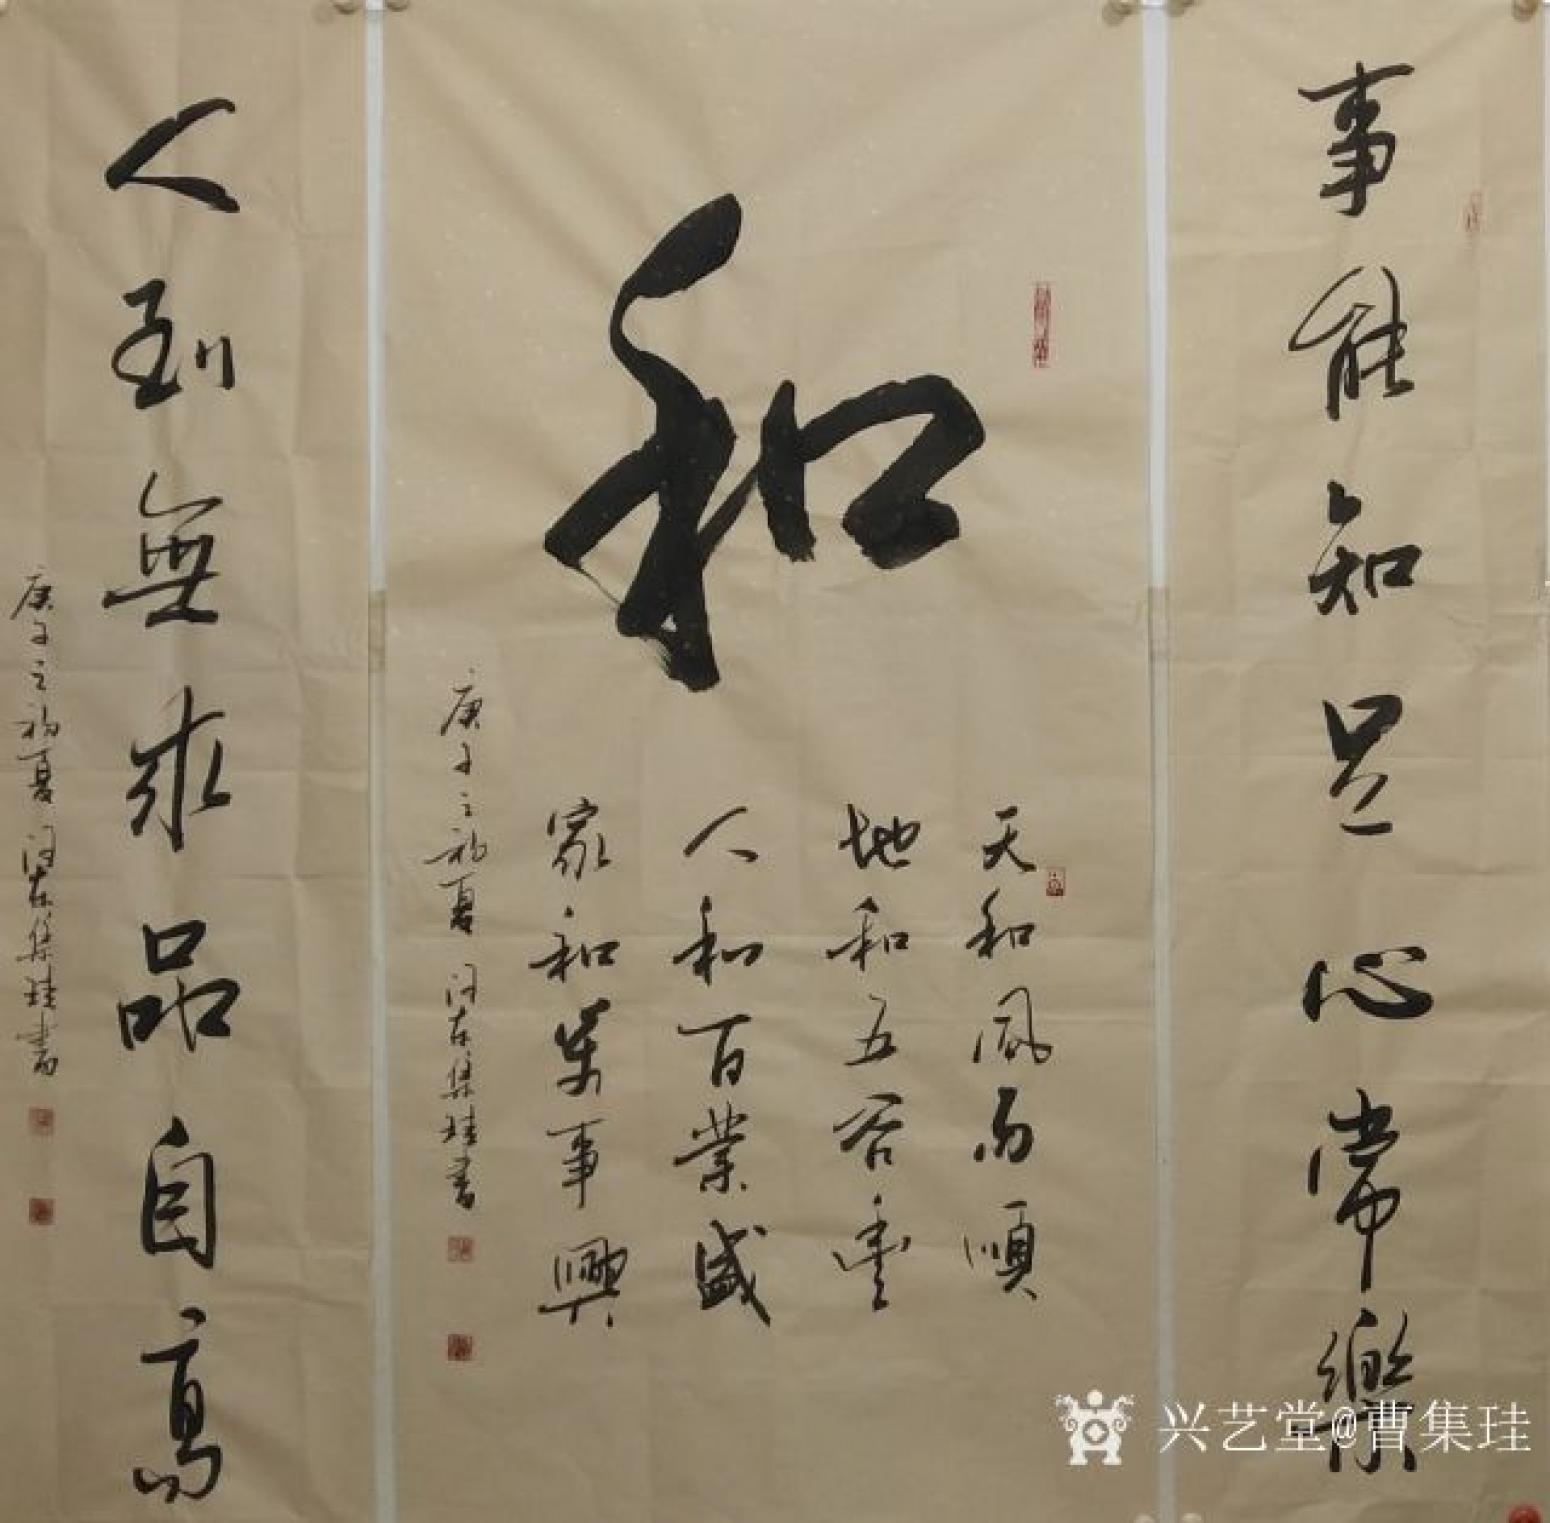 事能知足心常樂
和
天和風雨順
地和五谷豊
人和百業盛
家和萬事興
庚子之初夏河东集珪書
人到無求品自高
庚子之初夏河东集珪書
兴艺堂@曹集珪